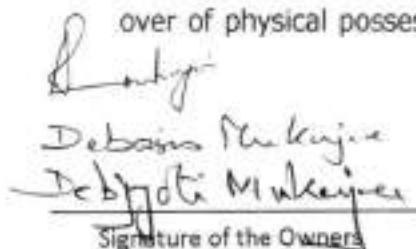 over of physical posses
Debasis Mukerjee
Debjyoti Mukerjee
Signature of the Owners